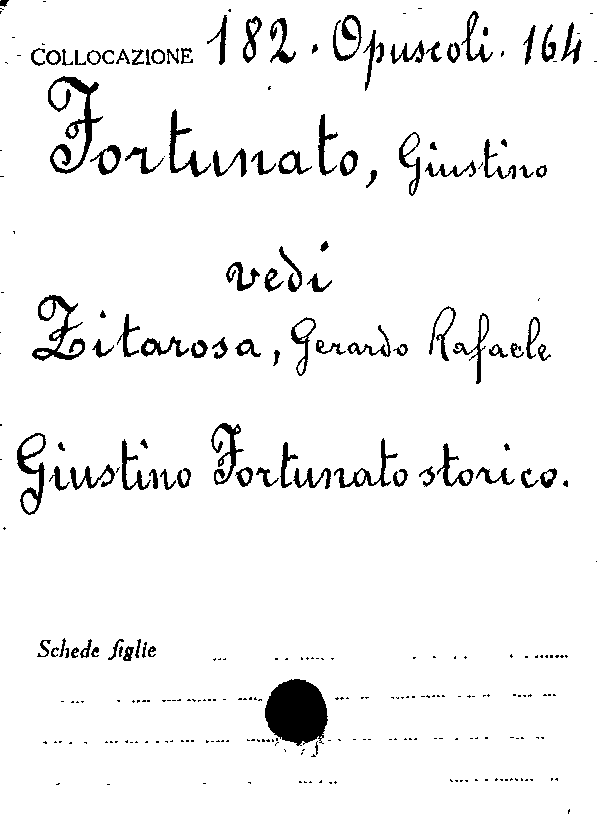 COLLOCAZIONE 182. Opuscoli. 164
Fortunato, Giustino
vedi
Zitarosa, Gerardo Rafaele
Giustino Fortunato storico.
Schede figlie